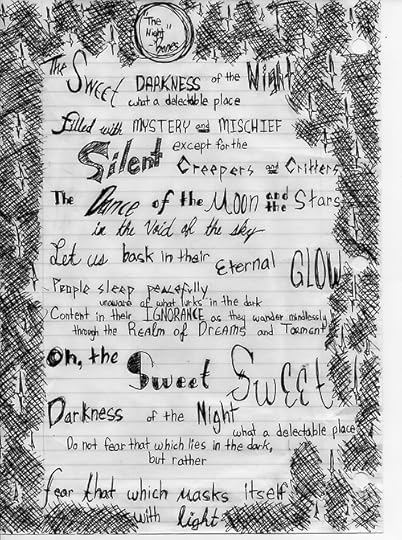 The
Night"
-bones
The Sweet DARKNESS of the Night
what a delectable place
filled with MYSTERY and MISCHIEF
Silent except for the
Creepers and Critters
The Dance of the Moon and the Stars
in the Void of the sky
Let us bask in their Eternal GLOW
People sleep peacefully
unaware of what lurks in the dark
Content in their IGNORANCE as they wander mindlessly
through the Realm of DREAMS and Torment
Oh, the Sweet Sweet
Darkness of the Night
what a delectable place
Do not fear that which lies in the dark,
but rather
fear that which masks itself
with light